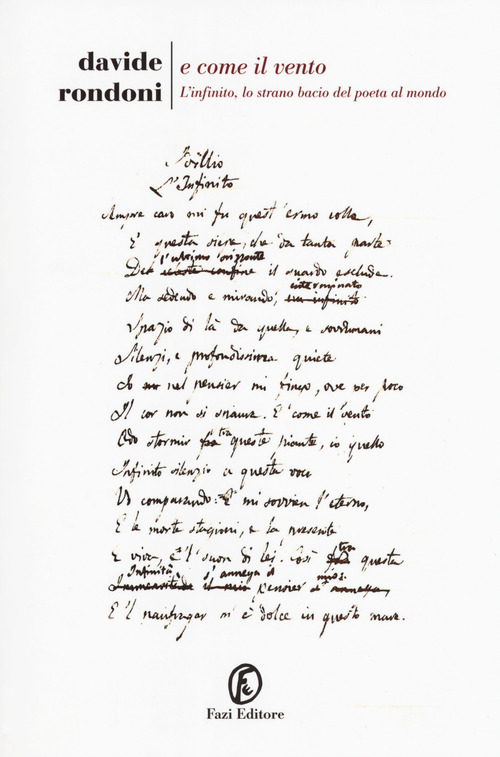 davide
rondoni
e come il vento
L'infinito, lo strano bacio del poeta al mondo
Idillio
L'Infinito
Sempre caro mi fu quest'ermo colle,
E questa siepe, che da tanta parte
l'ultimo orizzonte
Del celeste confine il guardo esclude.
interminato
Ma sedendo e mirando, un infinito
Spazio di là da quella, e sovrumani
Silenzi, e profondissima quiete
Io nel pensier mi fingo, ove per poco
Il cor non si spaura. E come il vento
tra
Odo stormir fra queste piante, io quello
Infinito silenzio a questa voce
Vo comparando: E mi sovvien l'eterno,
E le morte stagioni, e la presente
tra
E viva, e 'l suon di lei. Così fra questa
Infinità s'annega il mio
Immensitade il mio pensier s'annega,
E 'l naufragar m'è dolce in questo mare.
Fe
Fazi Editore